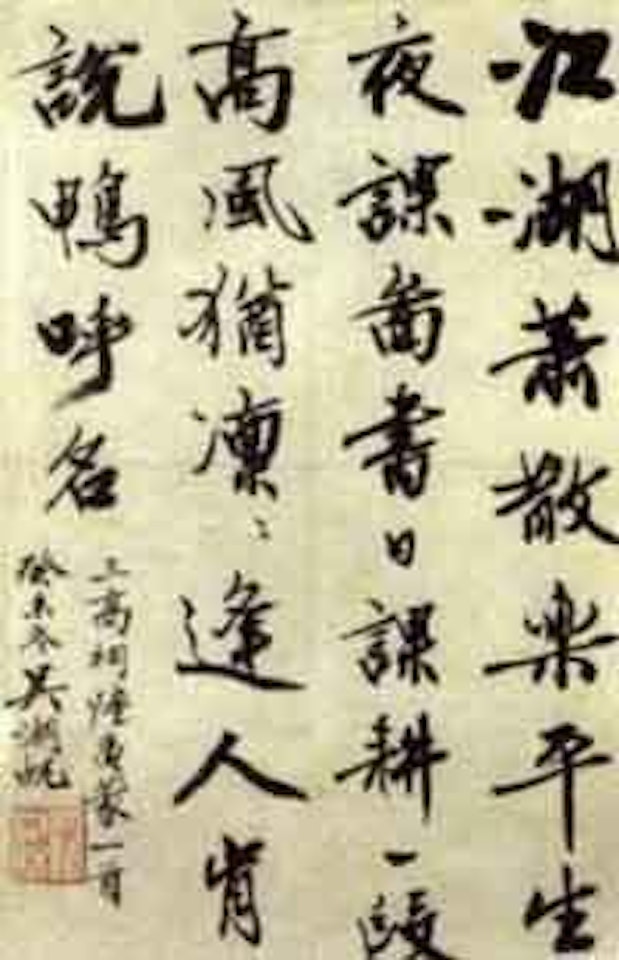 江湖蕭散楽平生
夜課啚書日課耕一段
高風猶凛〻逢人肯
說鴨呼名
三高祠陸龜蒙一首
癸未冬吳湖帆